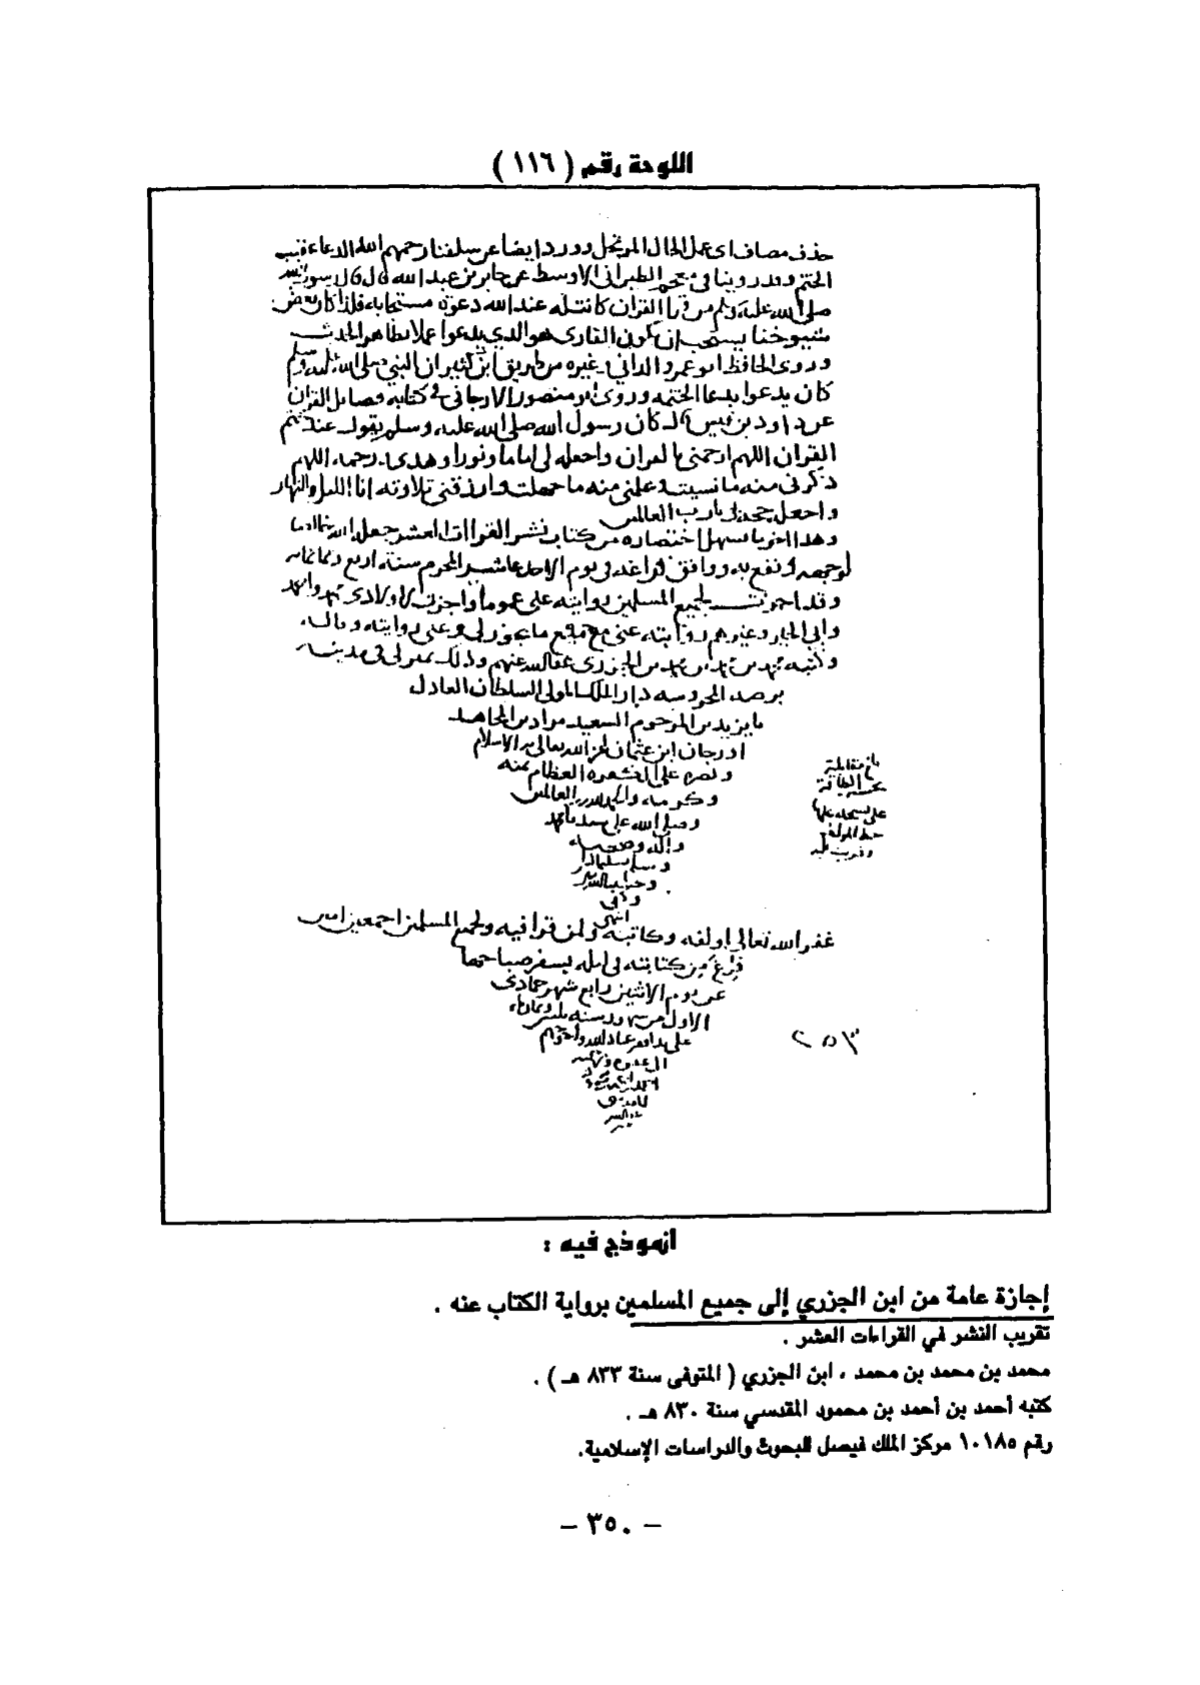 اللوحة رقم ( ١١٦ )
حذف مضاف اى عمل الحال المرتحل وورد ايضا عن سلفنا رحمهم الله الدعاء عقيب
الختم وقد روينا فى معجم الطبرانى الاوسط عن جابر بن عبد الله قال قال رسول الله
صلى الله عليه وسلم من قرا القران كانت له عند الله دعوة مستجابة فلذا كان بعض
شيوخنا يستحب ان يكون القارى هو الذي يدعوا عملا بظاهر الحديث
وروى الحافظ ابو عمرو الداني وغيره من طريق ابن كثير ان النبي صلى الله عليه وسلم
كان يدعوا بدعا الختمه وروى ابو منصور الارجاني فى كتابه فضائل القران
عن داود بن قيس قال كان رسول الله صلى الله عليه وسلم يقول عند ختم
القران اللهم ارحمنى بالقران واجعله لى اماما ونورا وهدى ورحمه اللهم
ذكرنى منه ما نسيت وعلمنى منه ما جهلت وارزقنى تلاوته انا الليل والنهار
واجعله حجة لى يارب العالمين
وهذا اخر ما سهل اختصاره من كتاب نشر القراات العشر جعله الله خالصا
لوجهه ونفع به ووافق فراغه فى يوم الاحد عاشر المحرم سنة اربع وثمانمايه
وقد اجزت لجميع المسلمين روايته على عموما واجزت لاولادى محمد واحمد
وابي الخير وغيرهم روايته عنى مع جميع ما يجوز لي وعنى روايته وقاله
وكتبه محمد بن محمد بن محمد بن الجزرى عفا الله عنهم وذلك بمنزلى فى مدينة
برصه المحروسه دار الملك المولى السلطان العادل
بايزيد بن المرحوم السعيد مراد بن المجاهد
اورخان ابن عثمان الله تعالى به الاسلام
ونصره على العظام بمنه
وكرمه والحمد لله رب العالمين
وصلى الله على سيدنا محمد
واله وصحبه
وسلم تسليما
وحسبنا الله
وكفى
انتهى
غفر الله تعالى لمولفه وكاتبه ولمن قرا فيه ولجميع المسلمين اجمعين امين
فرغ من كتابته فى ليله يسفر صباحها
عن يوم الاثنين رابع شهر جمادى
الاول سنه ثلثين وثمانمايه
على يد افقر عباد الله واحوجهم
بلغ مقابلة
بحسب الطاقة
على نسخة عليها
خط المولف
وقريت عليه
٢٥٣
انموذج فيه :
إجازة عامة من ابن الجزري إلى جميع المسلمين برواية الكتاب عنه .
تقريب النشر في القراءات العشر .
محمد بن محمد بن محمد ، ابن الجزري ( المتوفى سنة ٨٣٣ هـ ) .
كتبه أحمد بن أحمد بن محمود المقدسي سنة ٨٣٠ هـ .
رقم ١٠١٨٥ مركز الملك فيصل للبحوث والدراسات الإسلامية.
– ٣٥٠ –